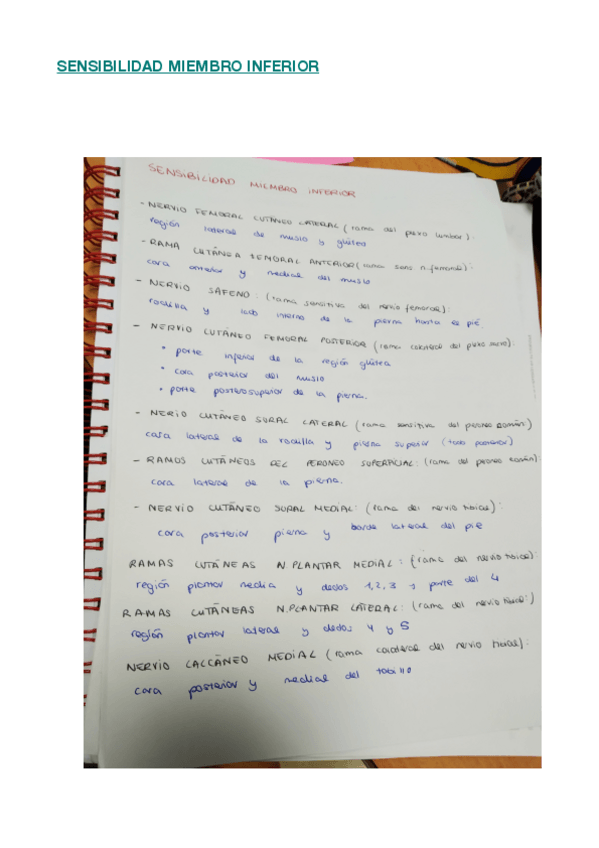 SENSIBILIDAD MIEMBRO INFERIOR
SENSIBILIDAD MIEMBRO INFERIOR
- NERVIO FEMORAL CUTÁNEO LATERAL (rama del plexo lumbar):
región lateral de muslo y glúteo
- RAMA CUTÁNEA FEMORAL ANTERIOR (rama sens n.femoral):
cara anterior y medial del muslo
- NERVIO SAFENO: (rama sensitiva del nervio femoral):
rodilla y lado interno de la pierna hasta es pié.
- NERVIO CUTÁNEO FEMORAL POSTERIOR (rama colateral del plexo sacro):
• parte inferior de la región glútea
• cara posterior del muslo
• parte posterosuperior de la pierna.
- NERIO CUTÁNEO SURAL LATERAL (rama sensitiva del peroneo común)
cara lateral de la rodilla y pierna superior (todo posterior)
- RAMOS CUTÁNEOS DEL PERONEO SUPERFICIAL: (rama del peroneo común):
cara lateral de la pierna.
- NERVIO CUTÁNEO SURAL MEDIAL: (rama del nervio tibial):
cara posterior pierna y borde lateral del pie
RAMAS CUTÁNEAS N.PLANTAR MEDIAL: (rama del nervio tibial):
región plantar media y dedos 1,2,3 y parte del 4
RAMAS CUTÁNEAS N.PLANTAR LATERAL: (rama del nervio tibial:)
región plantar lateral y dedos 4 y 5
NERVIO CALCÁNEO MEDIAL (rama colateral del nervio tibial):
cara posterior y medial del tobillo